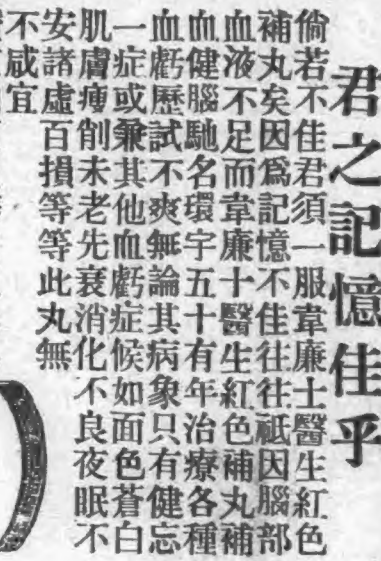 君之記憶佳乎
倘若不佳君須一服韋廉士醫生紅色
補丸矣因爲記憶不佳往往祇因腦部
血液不足而韋廉士醫生紅色補丸補
血健腦馳名環宇五十有年治療各種
血虧歷試不爽無論其病象只有健忘
一症或兼其他血虧症候如面色蒼白
肌膚瘦削未老先衰消化不良夜眠不
安諸虛百損等等此丸無
不咸宜